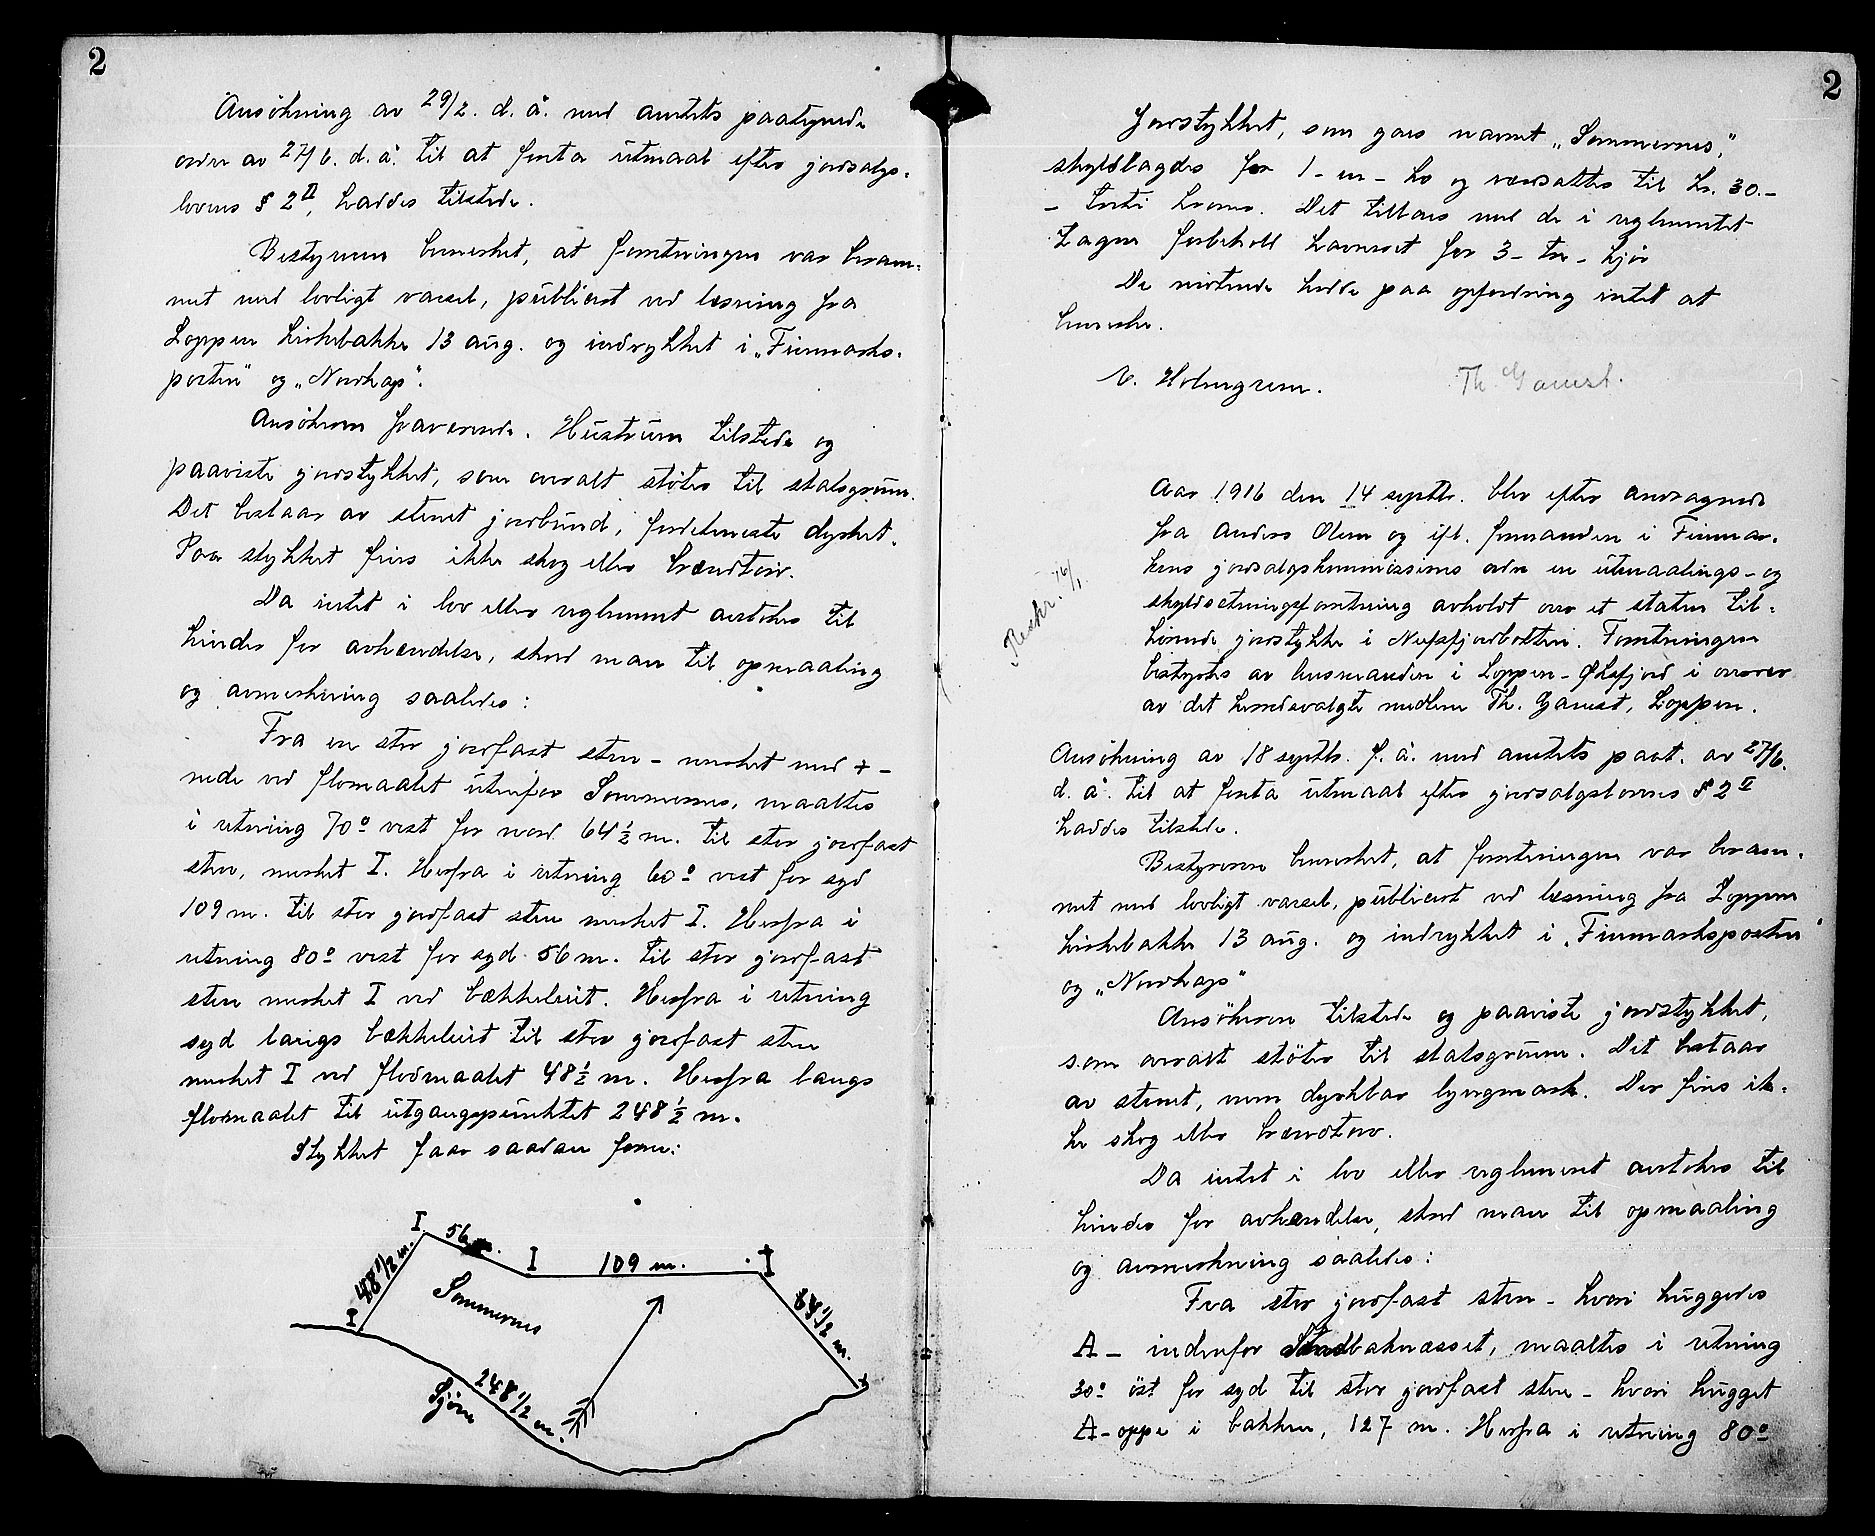 2
Ansökning av 29/2. d. å. med amtets paategnede
ordre av 27/6. d. å. til at foreta utmaal efter jordsalgs-
lovens § 2 II, haddes tilstede.
Bestyreren bemerket, at forretningen var beram-
met med lovligt varsel, publicert ved læsning fra
Loppen kirkebakke 13 aug. og indrykket i „Finmarks-
posten" og „Nordkap".
Ansökeren fraværende. Hustruen tilstede og
paaviste jordstykket, som overalt stöter til statsgrund.
Det bestaar av stenet jordbund, fordetmeste dyrket.
Paa stykket fins ikke skog eller brændtorv.
Da intet i lov eller reglement antokes til
hinder for avhændelse, skred man til opmaaling
og avmerkning saaledes:
Fra en stor jordfast sten – merket med + –
nede ved flomaalet utenfor Sommernes, maaltes
i retning 70° vest for nord 64 1/2 m. til stor jordfast
sten, merket I. Herfra i retning 60° vest for syd
109 m. til stor jordfast sten merket I. Herfra i
retning 80° vest for syd 56 m. til stor jordfast
sten merket I ved bækkeleiet. Herfra i retning
syd langs bækkeleiet til stor jordfast sten
merket I ved flodmaalet 48 1/2 m. Herfra langs
flomaalet til utgangspunktet 248 1/2 m.
Stykket faar saadan form:
I 56 m. I 109 m. I
48 1/2 m. Sommernes 64 1/2 m.
I
248 1/2 m. +
Sjöen
2
Jordstykket, som gaves navnet „Sommernes",
skyldlagdes for 1 – en – øre og værdsattes til kr. 30.–
– tretti kroner. Det tillaes med de i reglementet
tagne forbehold havneret for 3 – tre – kjør
De mötende hadde paa opfordring intet at
bemerke.
V. Holmgren. Th. Gamst.
Aar 1916 den 14 septbr. blev efter andragende
fra Anders Olsen og ifl. formanden i Finmar-
kens jordsalgskommissions ordre en utmaalings- og
skyldsetningsforretning avholdt over et staten til-
hörende jordstykke i Nufsfjordbotten. Forretningen
bestyrtes av lensmanden i Loppen-Øksfjord i overvær
av det herredsvalgte medlem Th. Gamst, Loppen.
Beskr. 16/1
Ansökning av 18 septbr. f. å. med amtets paat. av 27/6.
d. å. til at foreta utmaal efter jordsalgslovens § 2 II
haddes tilstede.
Bestyreren bemerket, at forretningen var beram-
met med lovligt varsel, publicert ved læsning fra Loppen
kirkebakke 13 aug. og indrykket i „Finmarksposten"
og „Nordkap"
Ansökeren tilstede og paaviste jordstykket,
som overalt stöter til statsgrund. Det bestaar
av stenet, men dyrkbar lyngmark. Der fins ik-
ke skog eller brændtorv.
Da intet i lov eller reglement antokes til
hinder for avhændelse, skred man til opmaaling
og avmerkning saaledes:
Fra stor jordfast sten – hvori huggedes
A – indenfor Strandbaknæsset, maaltes i retning
30° öst for syd til stor jordfast sten – hvori hugget
A – oppe i bakken, 127 m. Herfra i retning 80°